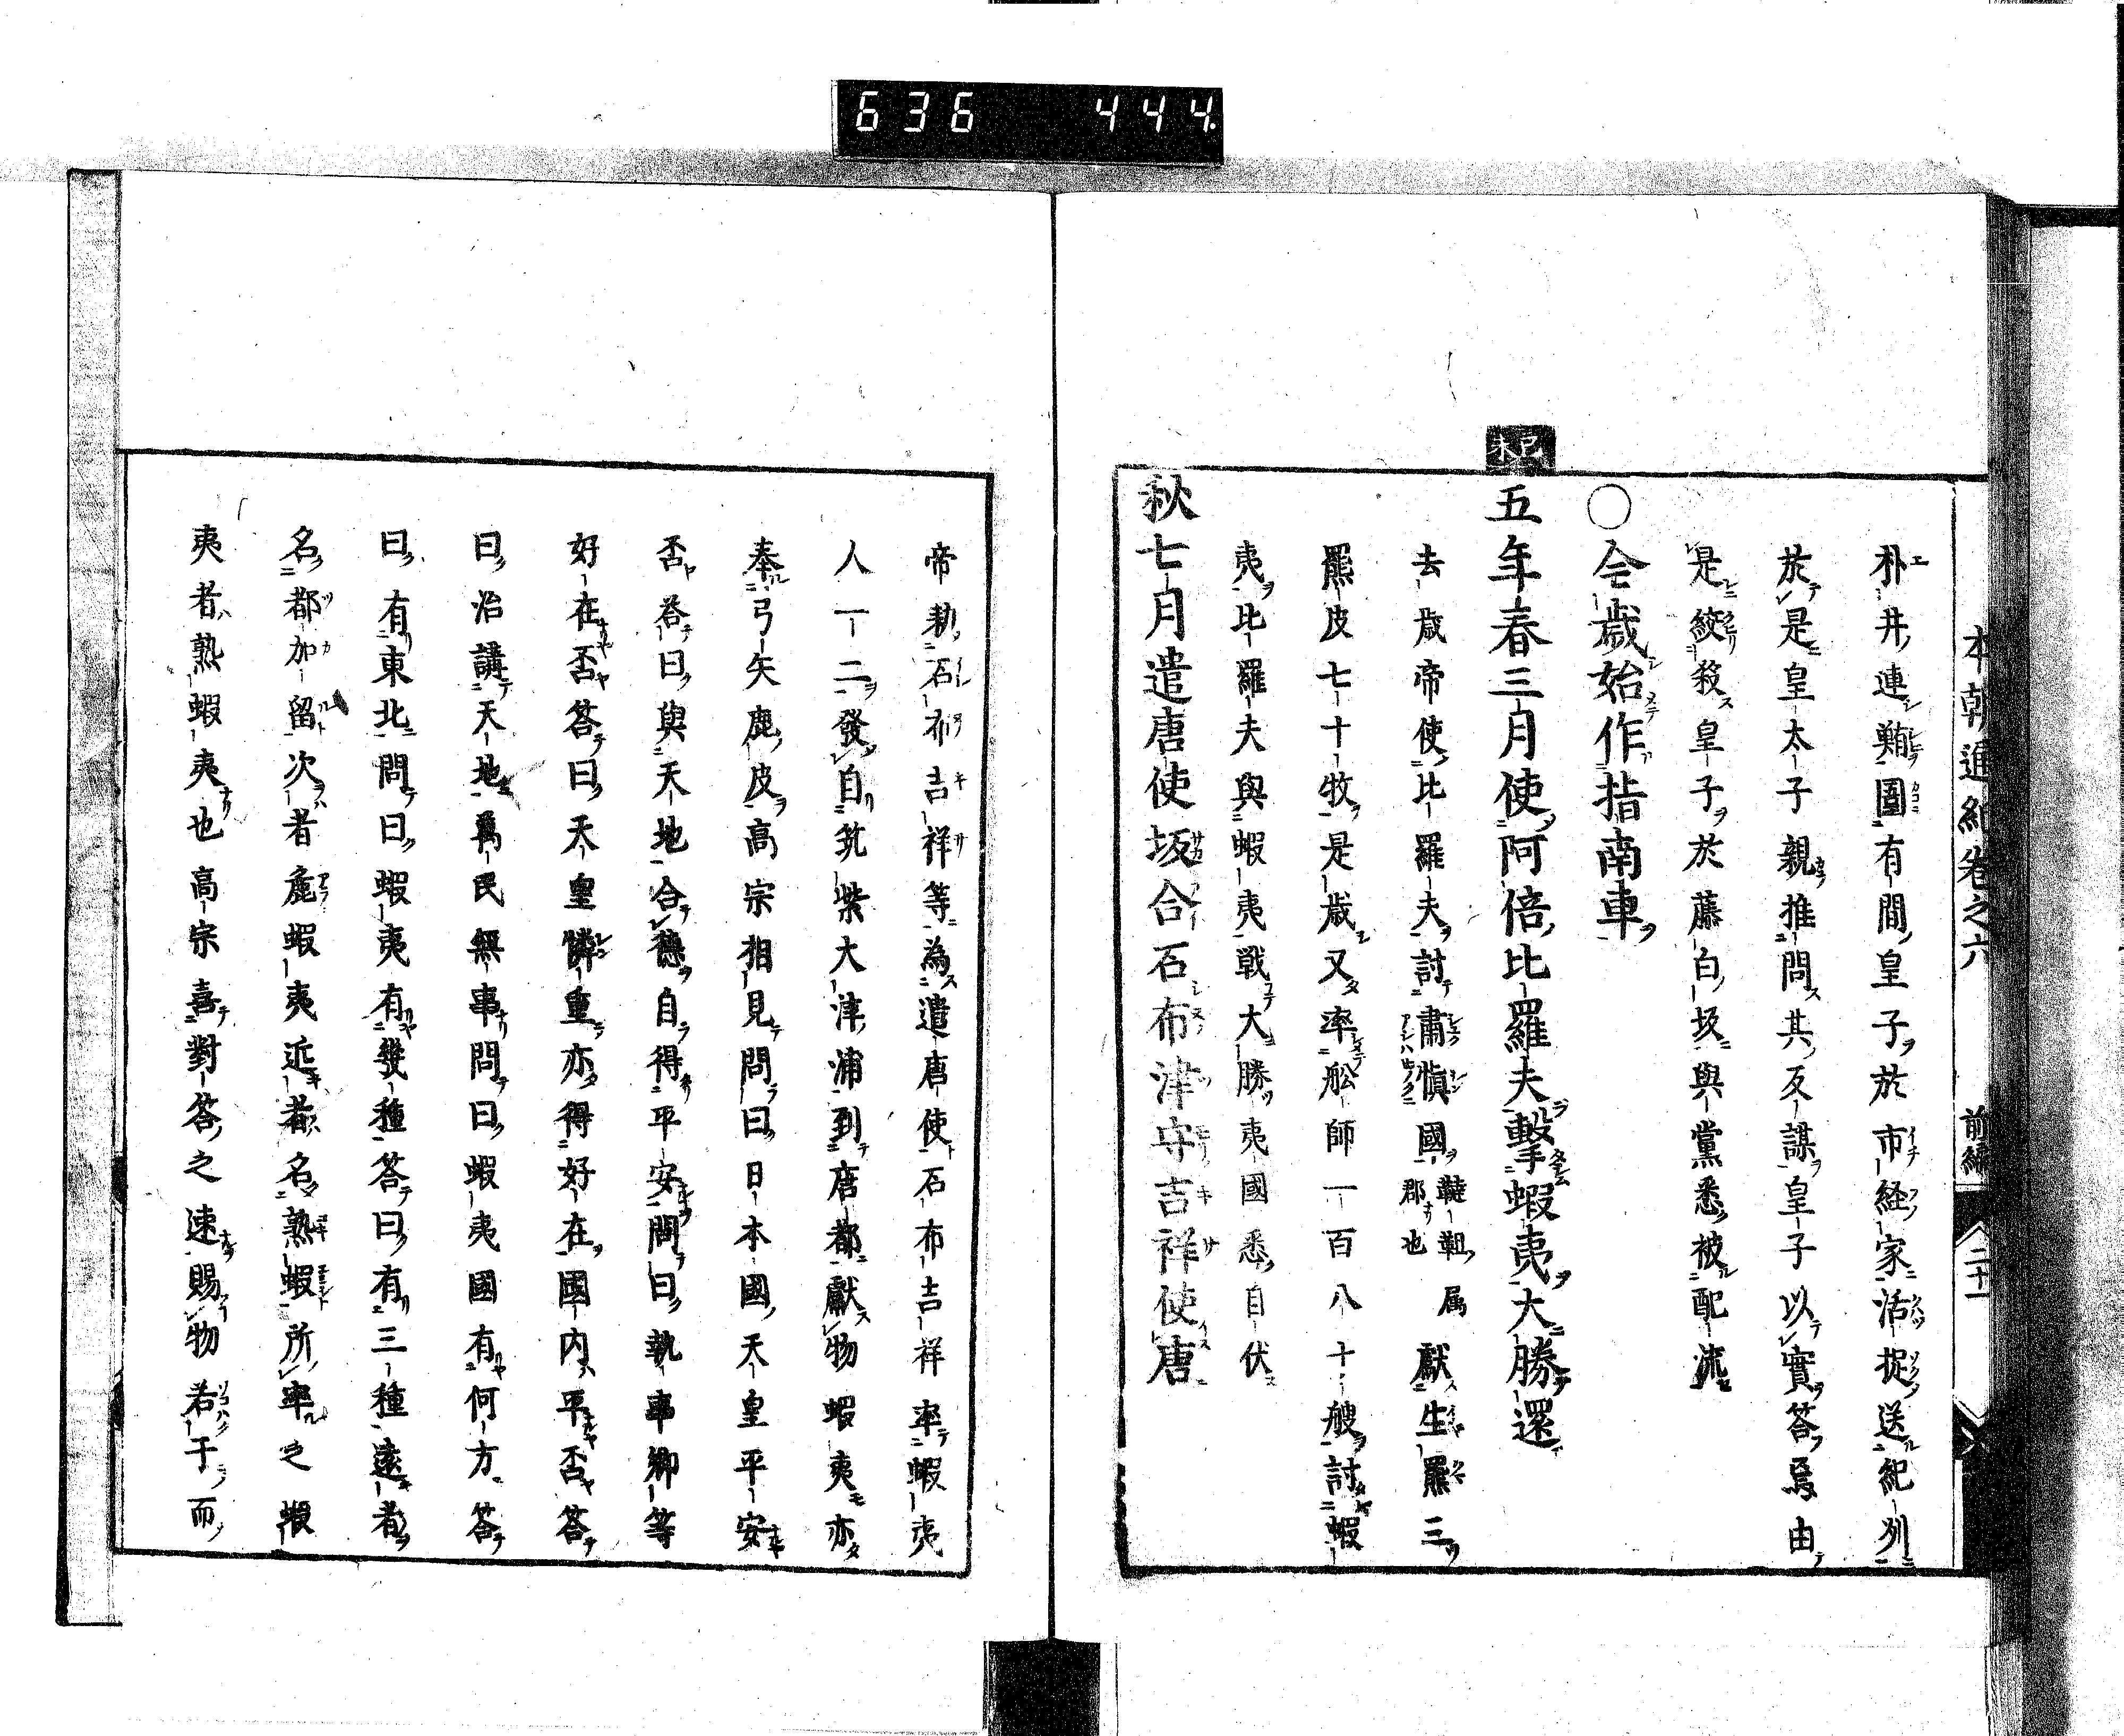 636 444
本朝通紀卷之六 前編 二十一
朴井連鮪圍有間皇子於市経家活捉送紀刕
於是皇太子親推問其反謀皇子以實答焉由
是絞殺皇子於藤白坂與黨悉被配流
○今歳始作指南車
己未
五年春三月使阿倍比羅夫擊蝦夷大勝還
去歳帝使比羅夫討肅慎國韃靼属郡也獻生羆三
羆皮七十牧是歳又率舩師一百八十艘討蝦
夷比羅夫與蝦夷戰大勝夷國悉自伏
秋七月遣唐使坂合石布津守吉祥使唐
帝勅石布吉祥等為遣唐使石布吉祥率蝦夷
人一二發自筑紫大津浦到唐都獻物蝦夷亦
奉弓矢鹿皮高宗相見問曰日本國天皇平安
否答曰與天地合德自得平安問曰執事卿等
好在否答曰天皇憐重亦得好在國内平否答
曰治講天地萬民無事問曰蝦夷國有何方答
曰有東北問曰蝦夷有幾種答曰有三種遠者
名都加留次者麁蝦夷近者名熟蝦所率之蝦
夷者熟蝦夷也高宗喜對答之速賜物若于而